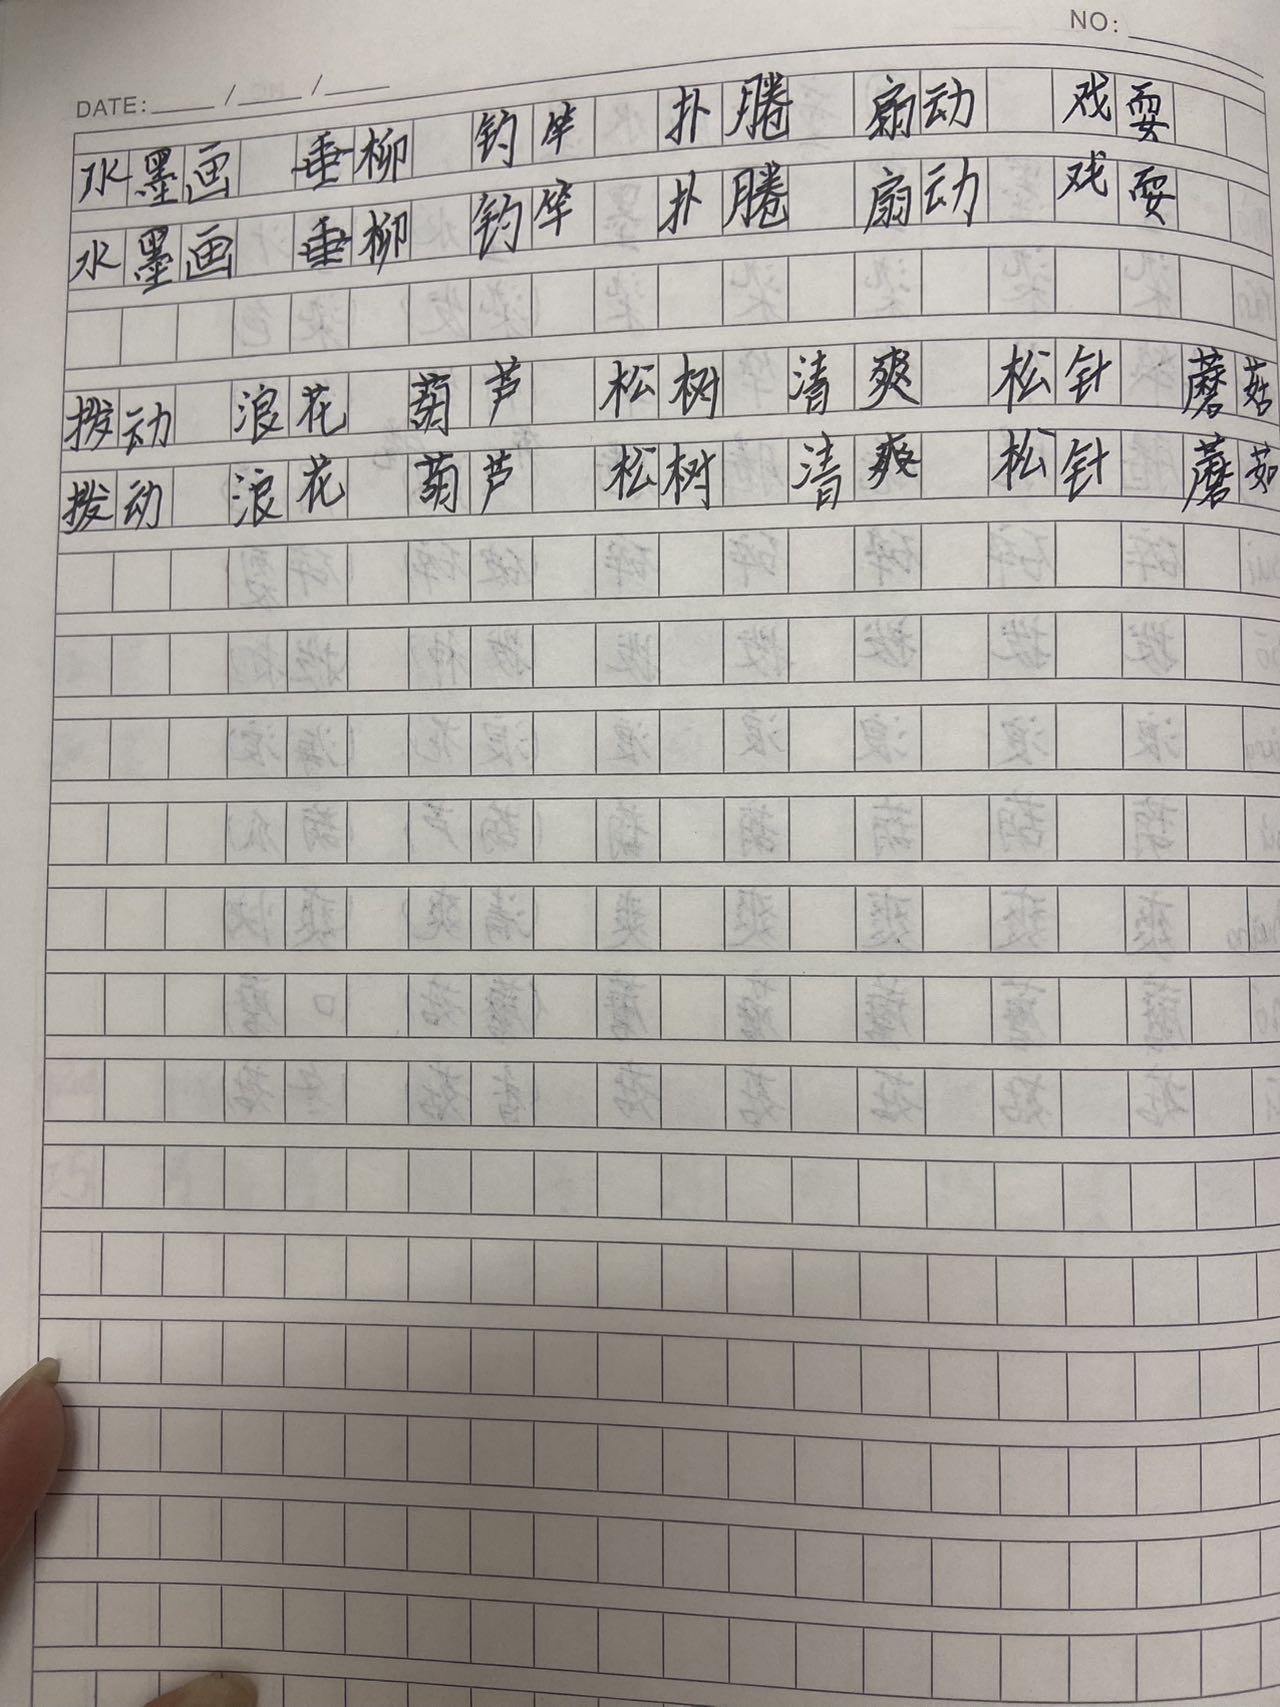 NO:
DATE: / /
水墨画 垂柳 钓竿 扑腾 扇动 戏耍
水墨画 垂柳 钓竿 扑腾 扇动 戏耍
拨动 浪花 葫芦 松树 清爽 松针 蘑菇
拨动 浪花 葫芦 松树 清爽 松针 蘑菇